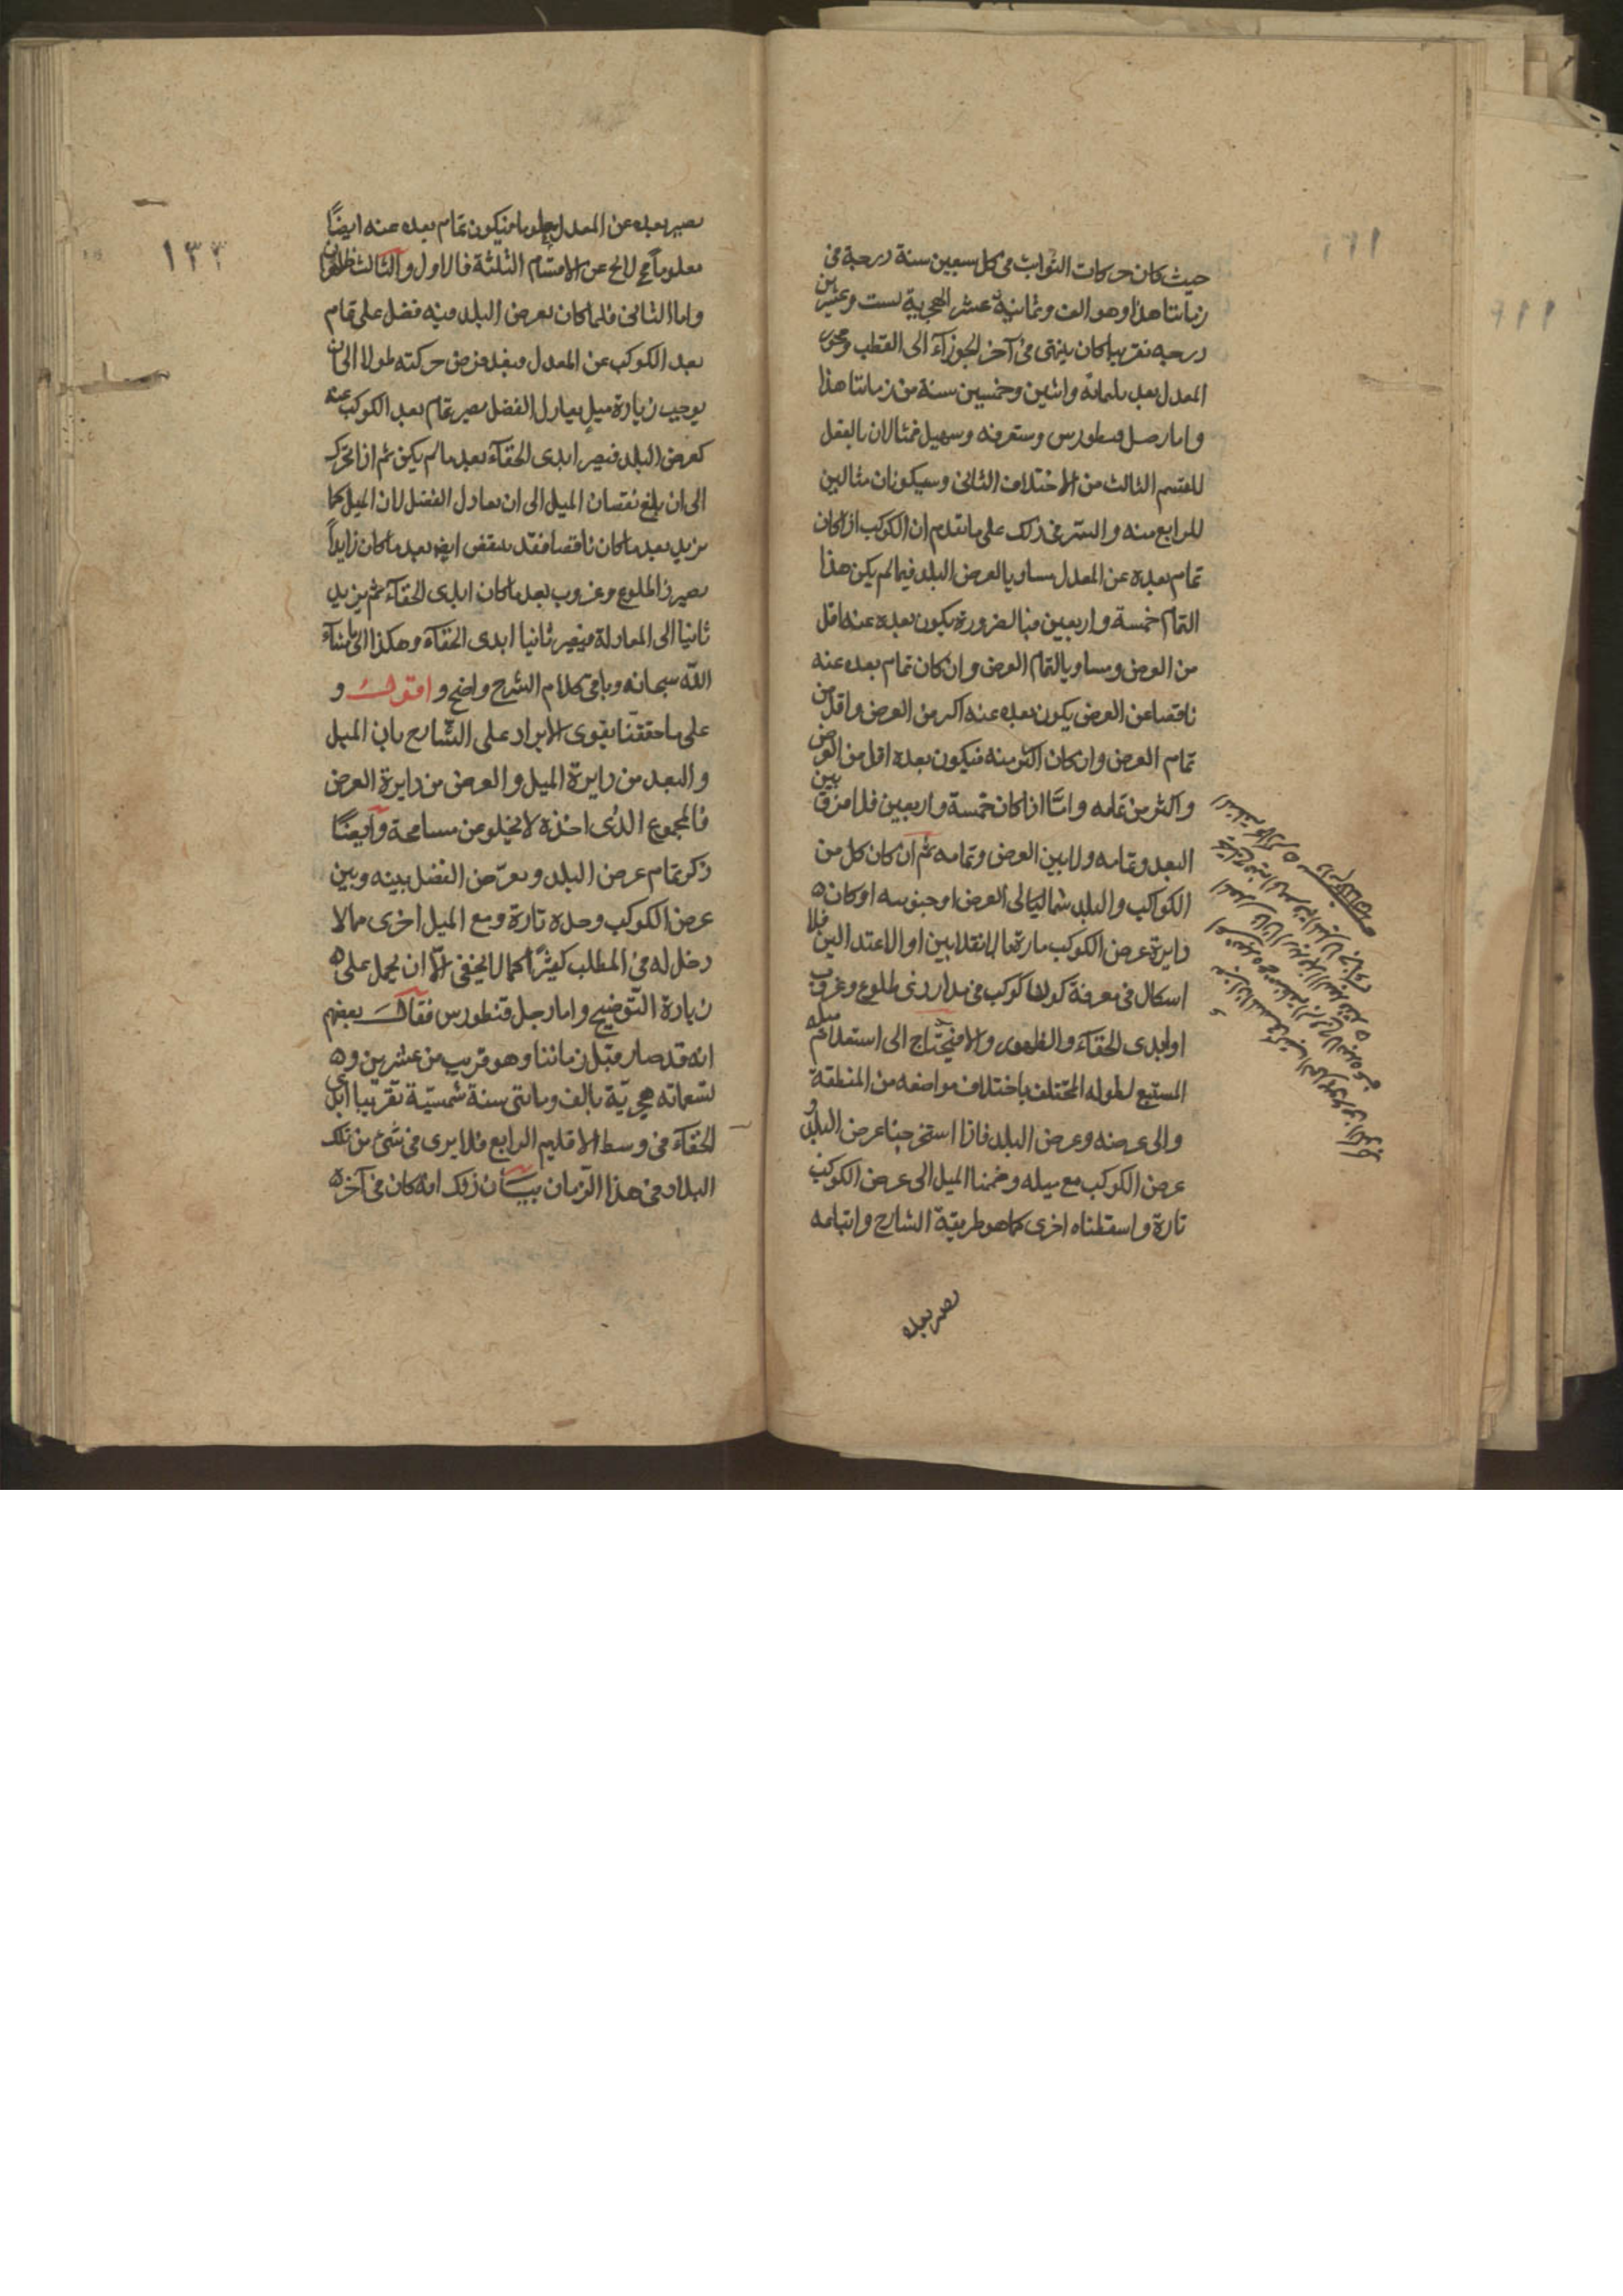 حيث كان حركات الثوابت فى كل سبعين سنة درجة فى
زماننا هذا وهو الف وثمانية عشر الهجرية ست وعشرين
درجه تقريبا كان ينتهى فى آخر الجوزآء الى القطب ومحور
المعدل بعد ثلثمائة واثنين وخمسين سنة من زماننا هذا
واما رجل قنطورس وستعرفه وسهيل فمثالان بالفعل
للقسم الثالث من الاختلاف الثانى وسيكونان مثالين
للرابع منه والسر فى ذلك على ما تقدم ان الكوكب اذا كان
تمام بعده عن المعدل مساويا لعرض البلد فيما لم يكن هذا
التمام خمسة واربعين فبالضرورة يكون بعده عنه اقل
من العرض ومساويا لتمام العرض وان كان تمام بعده عنه
ناقصا عن العرض يكون بعده عنه اكبر من العرض واقل من
تمام العرض وان كان اكثر منه فيكون بعده اقل من العرض
واكثر من تمامه واما اذا كان خمسة واربعين فلا فرق بين
البعد وتمامه ولا بين العرض وتمامه ثم ان كان كل من
الكواكب والبلد شماليا لى العرض او جنوبيه او كان
دايرة عرض الكوكب مارة بالانقلابين او الاعتدالين فلا
اشكال فى معرفة كون كوكب فى مدار ذى طلوع وغروب
او ابدى الخفآء والظهور والا فيحتاج الى استعلام ميله
المستتبع لطوله المختلف باختلاف مواضعه من المنطقة
والى عرضه وعرض البلد فاذا استخرجنا عرض البلد و
عرض الكوكب مع ميله وضمنا الميل الى عرض الكوكب
تارة واسقطناه اخرى كما هو طريقة الشارح واتباعه
يصير بعده
١٣٣
يصير بعده عن المعدل معلوما فيكون تمام بعده عنه ايضًا
معلوماً فح لا يخ عن الاقسام الثلثة فالاول والثالث ظاهران
واما الثانى فلما كان لعرض البلد فيه فضل على تمام
بعد الكوكب عن المعدل فبعد فرض حركته طولا الى ان
يوجب زيادة ميل يعادل الفضل يصير تمام بعد الكوكب عنه
كعرض البلد فيصير ابدى الخفآء بعد ما لم يكن ثم اذا تحرك
الى ان بلغ نقصان الميل الى ان يعادل الفضل لان الميل كما
يزيد بعد ما كان ناقصا فقد ينقص ايضا بعد ما كان زايداً
يصير ذا طلوع وغروب بعد ما كان ابدى الخفآء ثم يزيد
ثانيا الى المعادلة فيصير ثانيا ابدى الخفآء وهكذا الى ما شآء
الله سبحانه وباقى كلام الشرح واضح واقول و
على ما حققنا يقوى الايراد على الشارح بان الميل
والبعد من دايرة الميل والعرض من دايرة العرض
فالمجموع الذى اخذه لا يخلو من مسامحة وايضًا
ذكر تمام عرض البلد وتعرض الفضل بينه وبين
عرض الكوكب وحده تارة ومع الميل اخرى مما لا
دخل له فى المطلب كثيرًا كما لا يخفى الا ان يحمل على
زيادة التوضيح واما رجل قنطورس فقال بعضهم
انه قد صار قبل زماننا وهو قريب من عشرين و
تسعمائه هجرية بالف ومائتى سنة شمسية تقريبا ابدى
الخفآء فى وسط الاقليم الرابع فلا يرى فى شئ من تلك
البلاد فى هذا الزمان بيان ذلك انه كان فى آخر